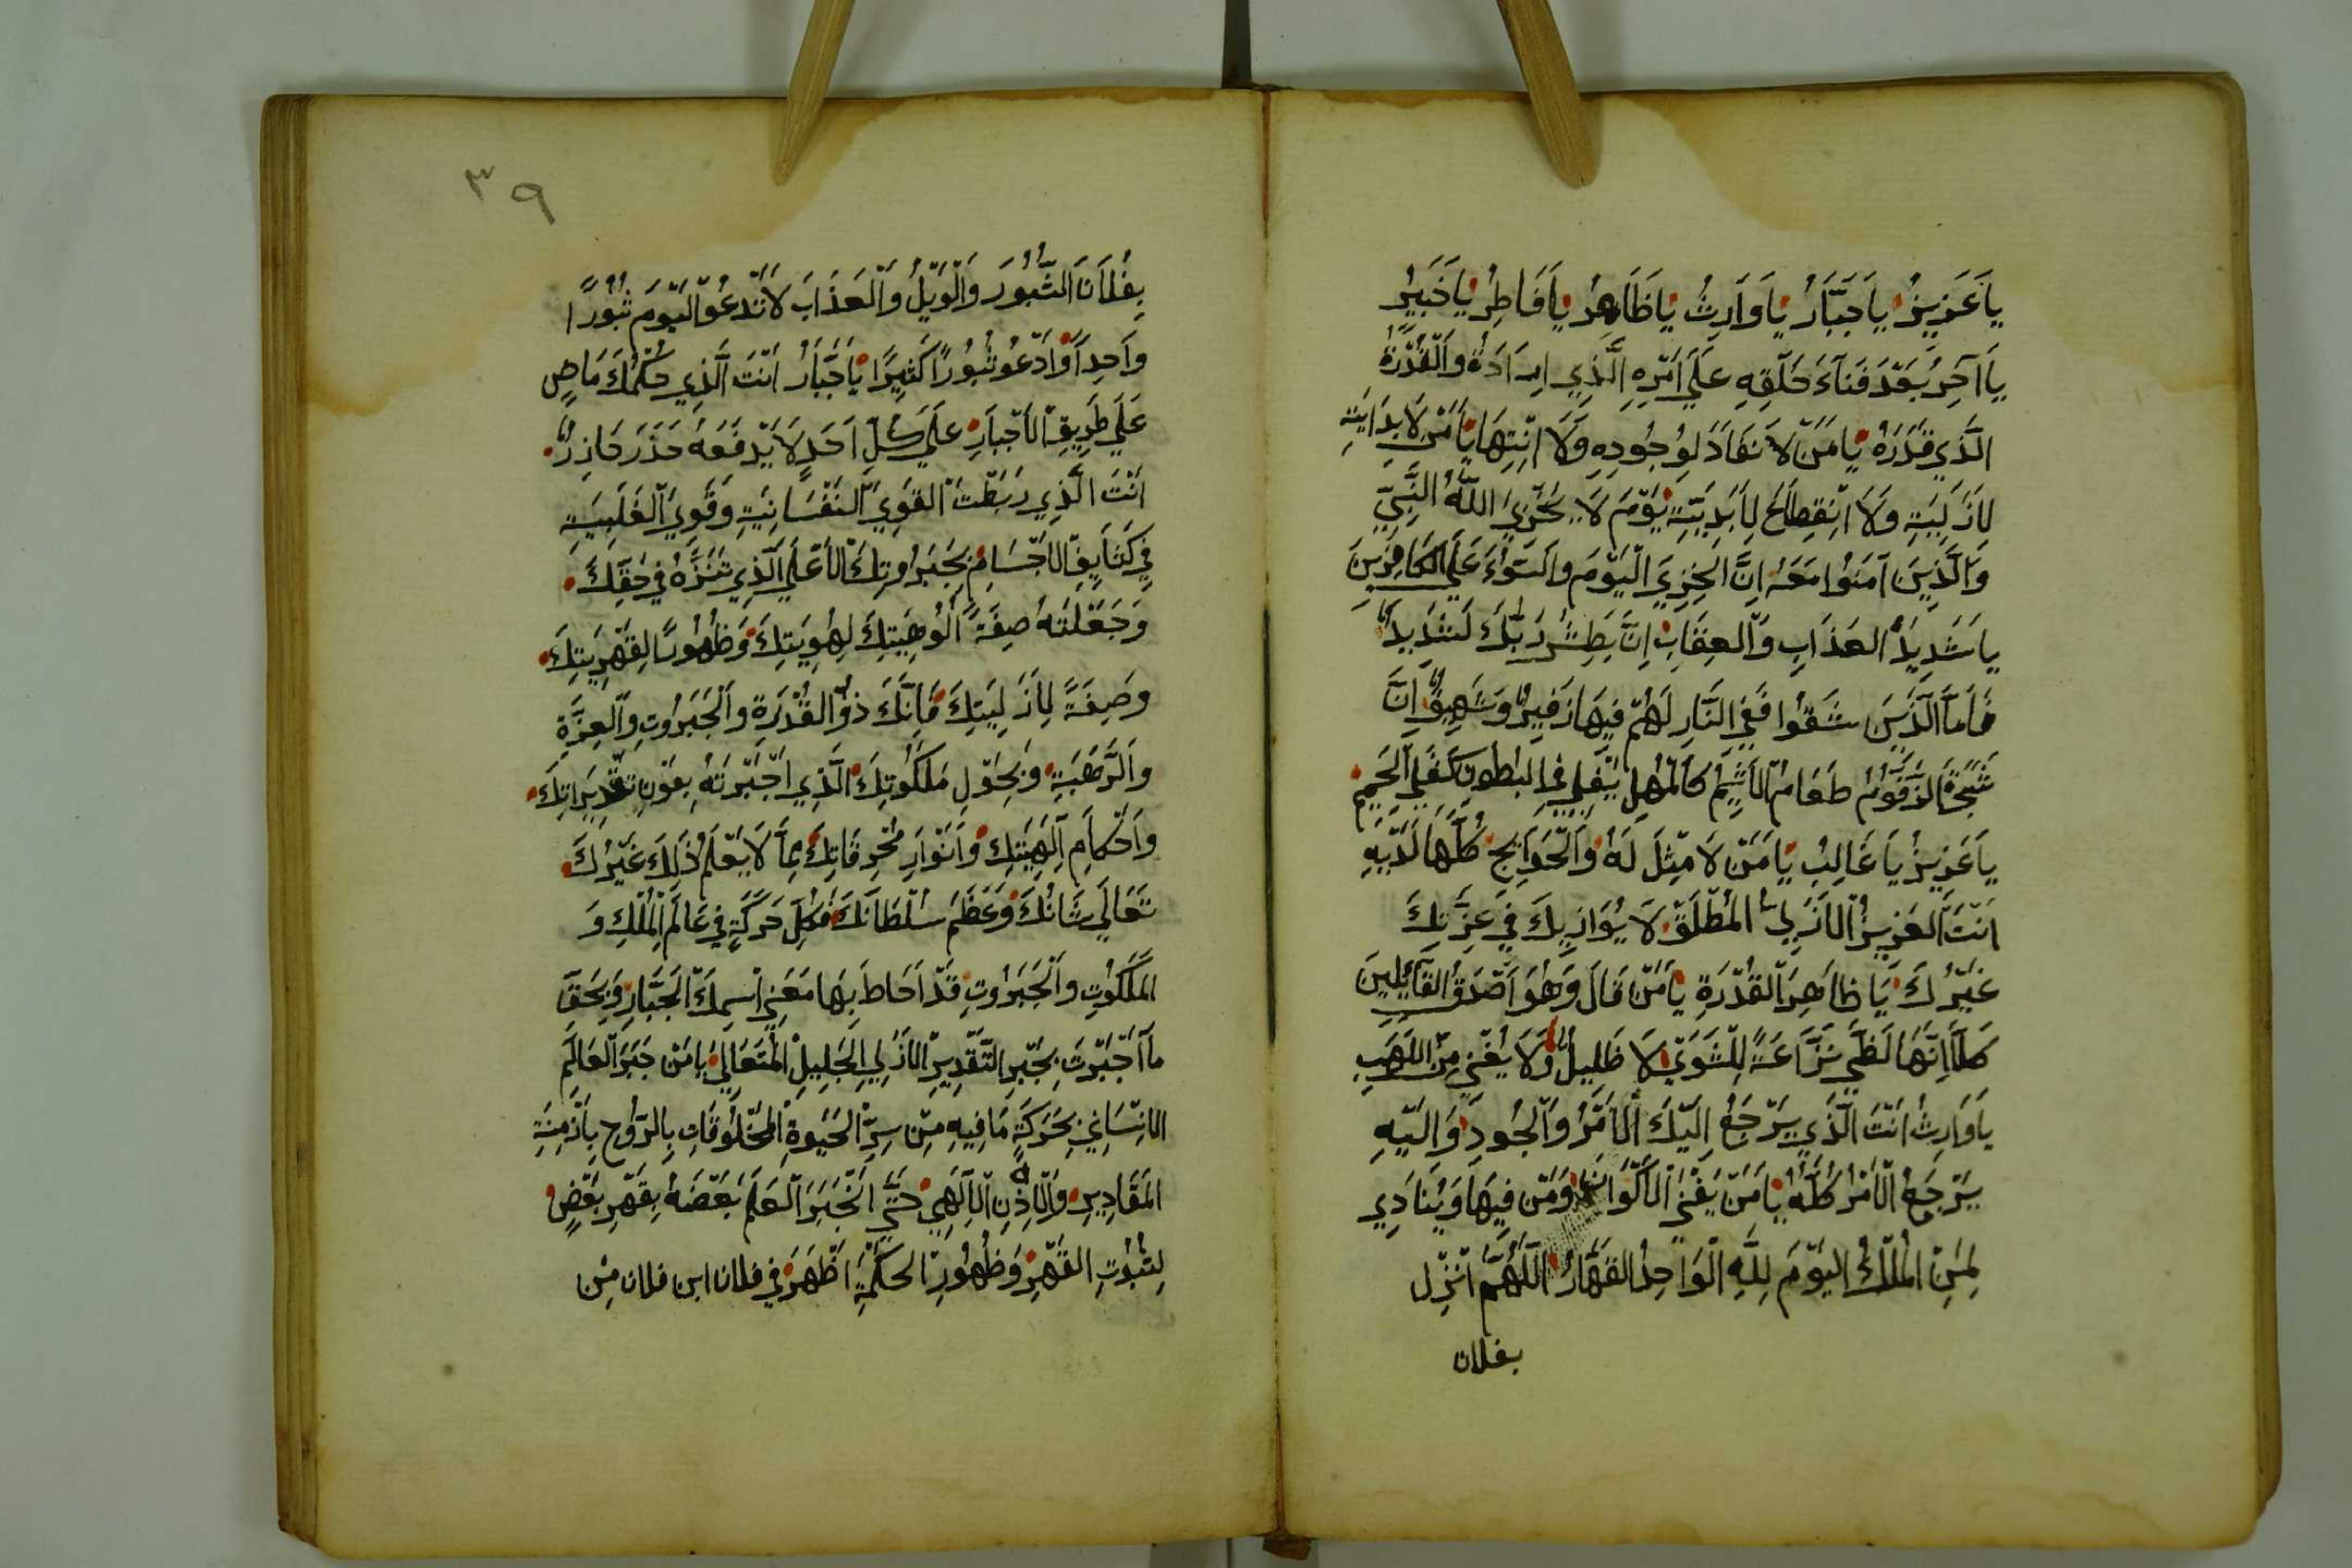 يا عَزِيزُ يا جَبَّارُ يَا وَارِثُ يَا ظَاهِرُ يَا فَاطِرُ يَا خَبِيرُ
يا آخِرُ بَعْدَ فَنَآءِ خَلْقِهِ عَلَي امْرِهِ الَّذِي ارَادَهُ والْقُدْرَةُ
الَّذِي قَدَّرَهُ يَا مَنْ لا نَفَادَ لِوُجُودِهِ وَلَا انْتِهَا يَا مَنْ لَا بِدَايَتِهِ
لِازَلِيَتِهِ وَلَا انْقِطَاعَ لِابَدِيَتِهِ يَوْمَ لَا يُخْزِي اللَّهُ النَّبِيَّ
وَالَّذِينَ آمَنُوا مَعَهُ اِنَّ الخِزيَ الْيَوْمَ والسُّوْءَ عَلَي الكَافِرِينَ
يا شَدِيدُ العَذَابِ وَالعِقَابِ اِنَّ بَطْشَ رَبِّكَ لَشَدِيدٌ
فَاَمَّا الَّذِينَ شَقُوا فَفِي النَّارِ لَهُمْ فِيهَا زَفِيرٌ وَشَهِيقٌ اِنَّ
شَجَرَةَ الزَّقُّومِ طَعَامُ الاَثِيمِ كَالْمُهْلِ يَغْلِي فِي البُطُونِ كَغَلْيِ الحَمِيمِ
يا عَزِيزُ يا غَالِبُ يَا مَنْ لا مِثْلَ لَهُ وَالْحَوَايِجُ كُلُّهَا لَدَيْهِ
اَنْتَ العَزِيزُ الازَلِي المُطْلَقُ لا يُوَازِيكَ فِي عِزِّتِكَ
غَيْرُكَ يَا ظاهِرَ القُدْرَةِ يَا مَنْ قَالَ وَهُوَ اَصْدَقُ القَآئِلِينَ
كَلاَّ اِنَّهَا لَظَي نَزَّاعَةً لِلشَّوَي لا ظَلِيلٌ وَلَا يُغْنِي مِنَ اللَهَبِ
يا وَارِثُ انْتَ الَّذِي يَرْجِعُ اِلَيْكَ الامْرُ وَالجُودِ وَالَيْهِ
يَرْجِعُ الامْرُ كُلُّهُ يَا مَنْ يُفْنِي الاكْوَانَ وَمَنْ فِيهَا وَيُنَادِي
لِمَنِ المُلْكُ اليَوْمَ لِلَّهِ الْوَاحِدِ القَهَّارُ اللَّهُمَّ انْزِل
بفلان
٣٩
بِفُلَانَ الثُّبُورَ وَالْوَيْلُ وَالْعَذَابَ لا تَدْعُوا اليَوْمَ ثُبُورًا
واحِدًا وَادْعُو ثُبُورًا كَثِيرًا يَا جَبَّارُ انْتَ الَّذِي حُكْمُكَ مَاضٍ
عَلَي طَرِيقِ الاَجْبَارِ عَلَي كُلِّ اَحَدٍ لا يَدْفَعَهُ حَذَرَ حَاذِرٌ
انْتَ الَّذِي رَبَطْتَ القُوَيَ النَفْسَانِيَةِ وَقُوَي الغَلَبِيَةِ
فِي كَثَايِفِ الاجْسَامِ بِجَبَرُوتِكَ الاعْلَي الَّذِي تَنَزَّهُ فِي حَقِكَ
وَجَعَلْتَهُ صِفَةَ اُلُوهِيَتِكَ لِهُوِيَتِكَ وَظُهُورًا لِقَهْرِيَتِكَ
وصِفَةً لِازَلِيَتِكَ فَاِنَّكَ ذُو القُدْرَةِ والْجَبَرُوتِ والعِزَّةِ
والرَّهَبَةِ وَبِحَوْلِ مَلَكُوتِكَ الَّذِي اجْبَرْتَهُ بِعَوْنِ تَقْدِيرَاتِكَ
واَحْكَامِ اِلَهِيَتِكَ وَاَنْوَارِ مُحْرِقَاتِكَ مِمَّا لا يَعْلَمُ ذَلِكَ غَيْرُكَ
تَعَالَي شَانُكَ وَعَظُمَ سُلْطَانَكَ فَكُلّ حَرَكَةٍ فِي عَالَمِ الْمُلْكِ وَ
المَلَكُوتِ والْجَبَرُوتِ قَدْ اَحَاطَ بِهَا مَعْنِي اسْمِكَ الجَبَّارِ وَبِحَقِّ
مَا اَجْبَرْتَ بِجَبْرِ التَّقْدِيرِ الازَلِي الجَلِيلِ الْمُتَعَالِي يَا مَنْ جَبَرَ العَالَمَ
الانْسَانِي بِحَرَكَةِ مَا فِيهِ مِنْ سِرِّ الحَيوةِ المَخْلُوقَاتِ بِالرُّوحِ بِاَزْمِنَةِ
المَقَادِيرِ وَالاذِنِ الالَهِي حَتَّي انْجَبَرَ العَلَمُ بَعْضَهُ بِقَهْرِ بَعْضٍ
لِثُبُوتِ القَهْرِ وَظُهُورِ الحكمَةِ اظْهَرَ فِي فلان ابن فلان مِن